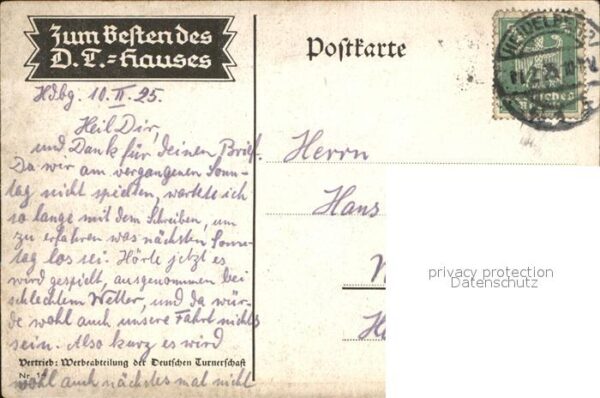 Zum Besten des
D. T.-Hauses
Postkarte
HEIDELBERG
11.2.25
Hdbg. 10. II. 25.
Heil Dir,
und Dank für deinen Brief.
Da wir am vergangenen Sonn-
tag nicht spielten, wartete ich
so lange mit dem Schreiben, um
zu erfahren was nächsten Sonn-
tag los sei. Hörte jetzt es
wird gespielt, ausgenommen bei
schlechtem Wetter, und da wür-
de wohl auch unsere Fahrt nichts
sein. Also kurz es wird
Vertrieb: Werbeabteilung der Deutschen Turnerschaft
Nr.
wohl auch nächstes mal nicht
Herrn
Hans
privacy protection
Datenschutz